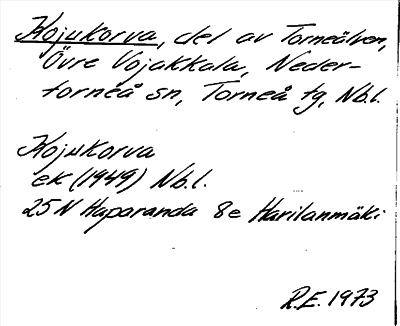 Kojukorva, del av Torneälven,
Övre Vojakkala, Neder-
torneå sn, Torneå tg, Nb.l.
Kojukorva
ek (1949) Nb.l.
25 N Haparanda 8e Harilanmäki
R.E. 1973